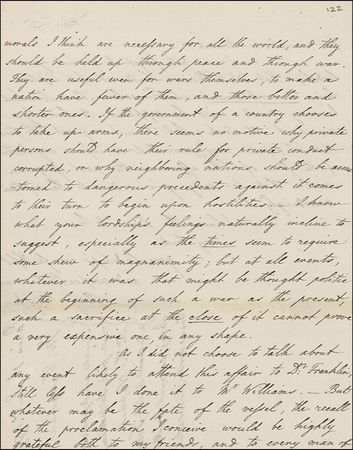 122
morals I think are necessary for all the world, and they
should be held up through peace and through war.
They are useful even for wars themselves, to make a
nation have fewer of them, and those better and
shorter ones. If the government of a country chooses
to take up arms, there seems no motive why private
persons should have their rule for private conduct
corrupted, or why neighbouring nations should be accus
-tomed to dangerous precedents against it comes
to their turn to begin upon hostilities. I know
what your lordship's feelings naturally incline to
suggest, especially as the times seem to require
some shew of magnanimity; but at all events,
whatever it was that might be thought politic
at the beginning of such a war as the present,
such a sacrifice at the close of it cannot prove
a very expensive one in any shape.
As I did not choose to talk about
any event likely to attend this affair to Dr. Franklin,
still less have I done it to Mr Williams. — But
whatever may be the fate of the vessel, the recall
of the proclamation I conceive would be highly
grateful both to my friends, and to every man of